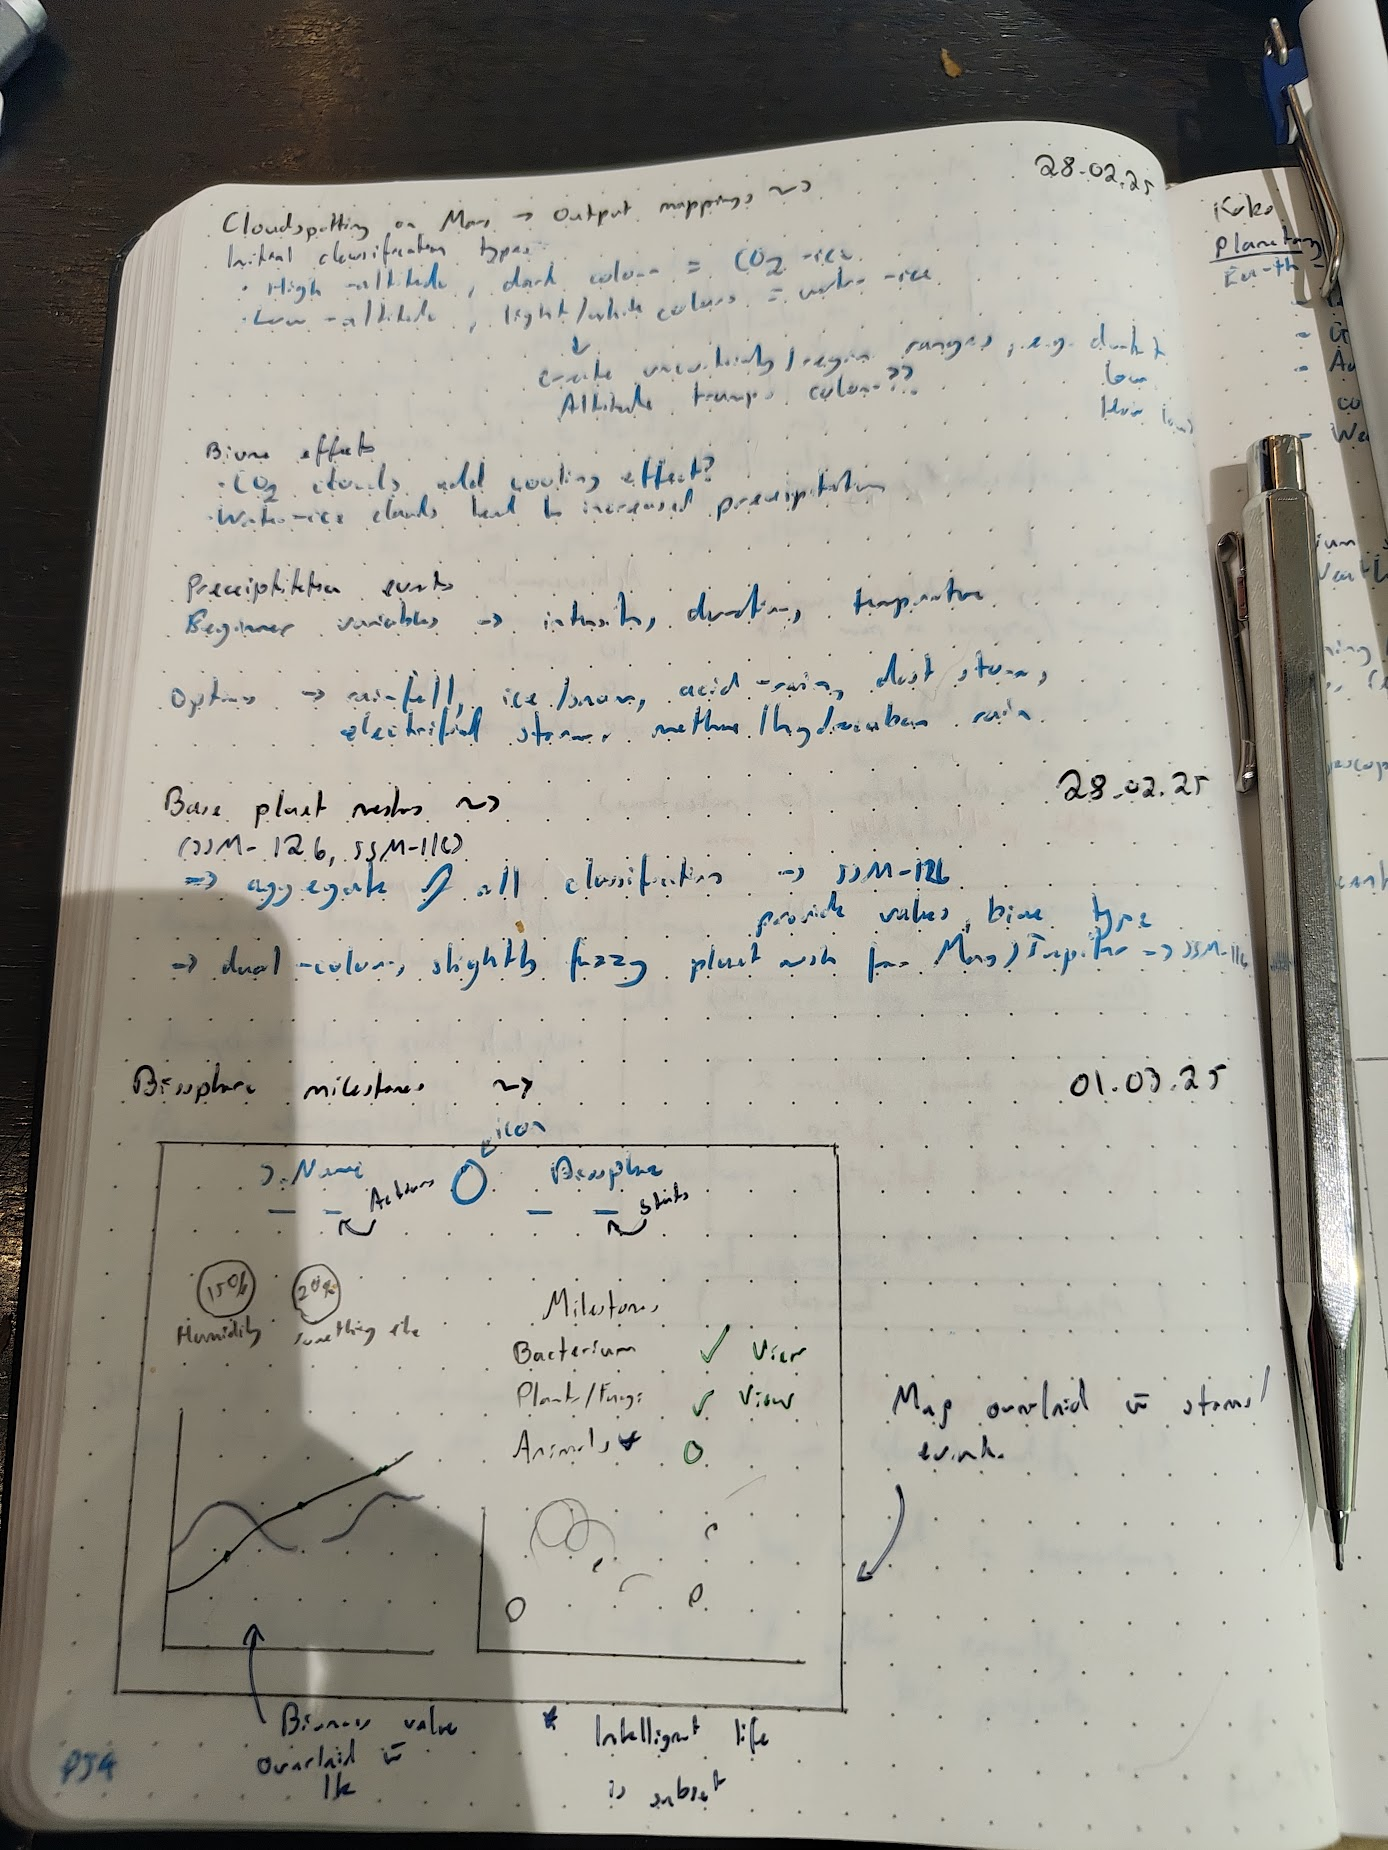 28.02.25
Cloudspotting on Mars → Output mappings ~>
Initial classification types
· High-altitude, dark colour = CO2-ice
· Low-altitude, light/white colours = water-ice
↓
create uncertainty/region ranges, e.g. dark +
low
Altitude trumps colour??
Biome effects
· CO2 clouds add cooling effect?
· Water-ice clouds lead to increased precipitation
Precipitation events
Beginner variables → intensity, duration, temperature
Options → rainfall, ice/snow, acid-rain, dust storms,
electrified storms, methane/hydrocarbon rain
Base planet meshes ~>
28.02.25
(SSM-126, SSM-116)
⇒ aggregate of all classifications → SSM-126
provide values, biome type
⇒ dual-colour, slightly fuzzy planet mesh for Mars/Jupiter → SSM-116
Biosphere milestones ~>
01.03.25
icon
Name
Biosphere
Actions
Stats
15%
20%
Humidity
Something else
Milestones
Bacterium ✓ View
Plants/Fungi ✓ View
Animals*
Map overlaid w storms/
events
Biomass value
overlaid w
* Intelligent life
is subset
P54
Koko
Planetary
Earth -